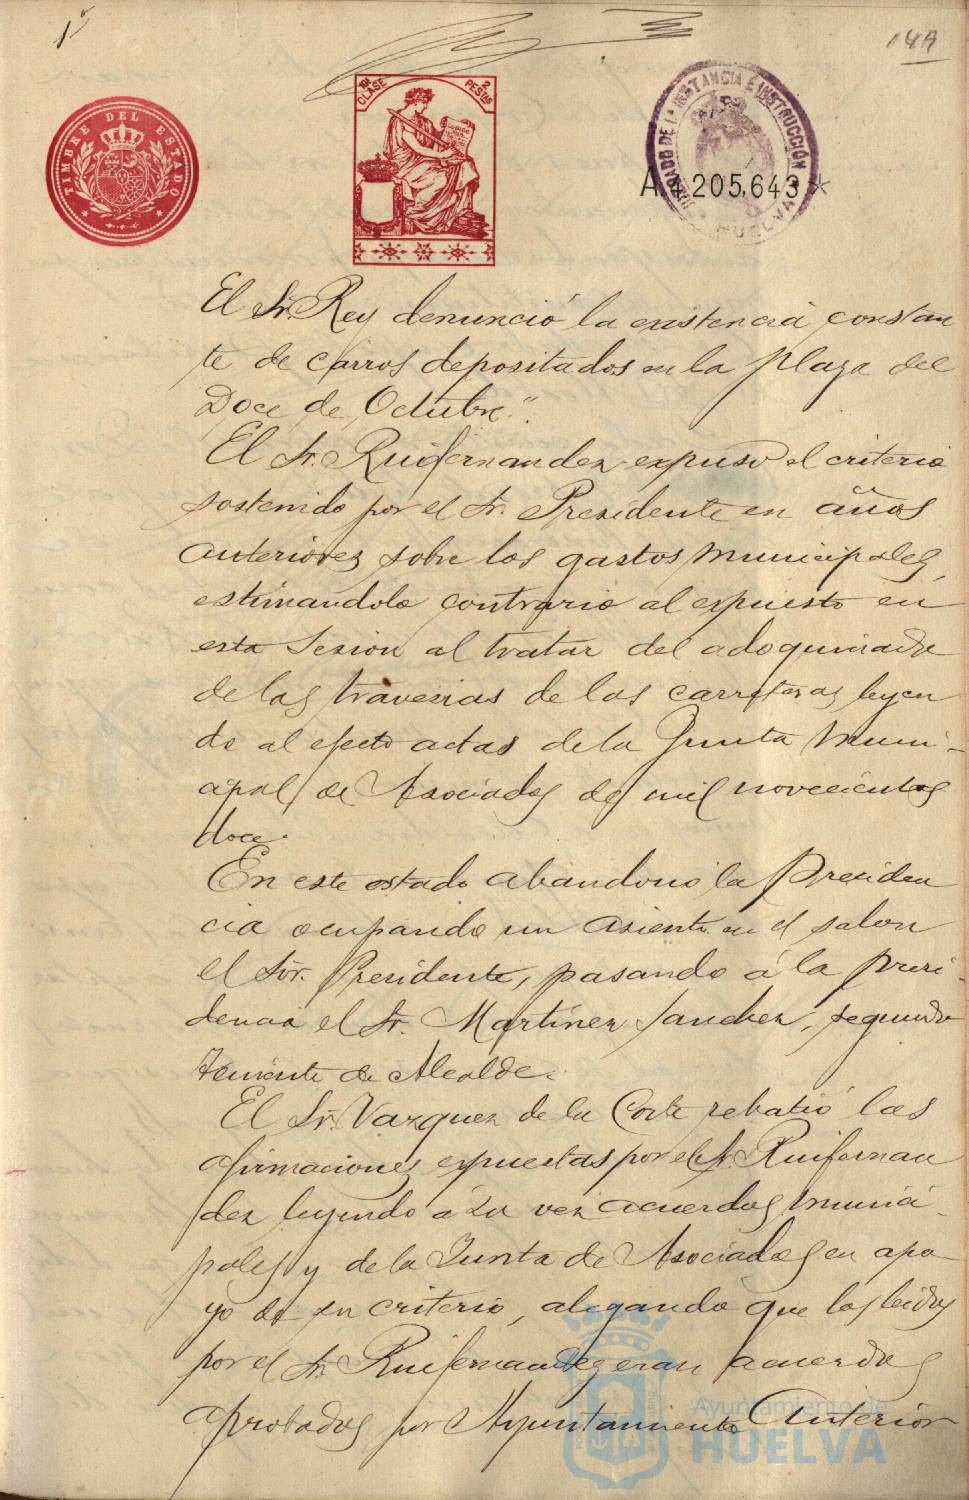 1º
148
TIMBRE DEL ESTADO
10ª CLASE
2 PESTAS
JUZGADO DE 1ª INSTANCIA É INSTRUCCIÓN
HUELVA
A.1.205,643*
El Sr. Rey denunció la existencia constan
te de carros depositados en la plaza del
Doce de Octubre."
El Sr. Ruifernandez expuso el criterio
sostenido por el Sr. Presidente en años
anteriores sobre los gastos municipales,
estimandolo contrario al expuesto en
esta sesion al tratar del adoquinado
de las travesias de las carreteras leyen
do al efecto actas de la Junta Muni-
cipal de Asociados de mil novecientos
doce.
En este estado abandonó la Presiden
cia ocupando un asiento en el salon
el Sor. Presidente, pasando á la presi-
dencia el Sr. Martinez Sanchez, segundo
Teniente de Alcalde.
El Sr. Vazquez de la Corte rebatió las
afirmaciones expuestas por el Sr. Ruifernan
dez leyendo á su vez acuerdos munici-
pales y de la Junta de Asociados en apo-
yo de su criterio, alegando que los leidos
por el Sr. Ruifernandez eran acuerdos
aprobados por Ayuntamiento anterior
Ayuntamiento de
HUELVA